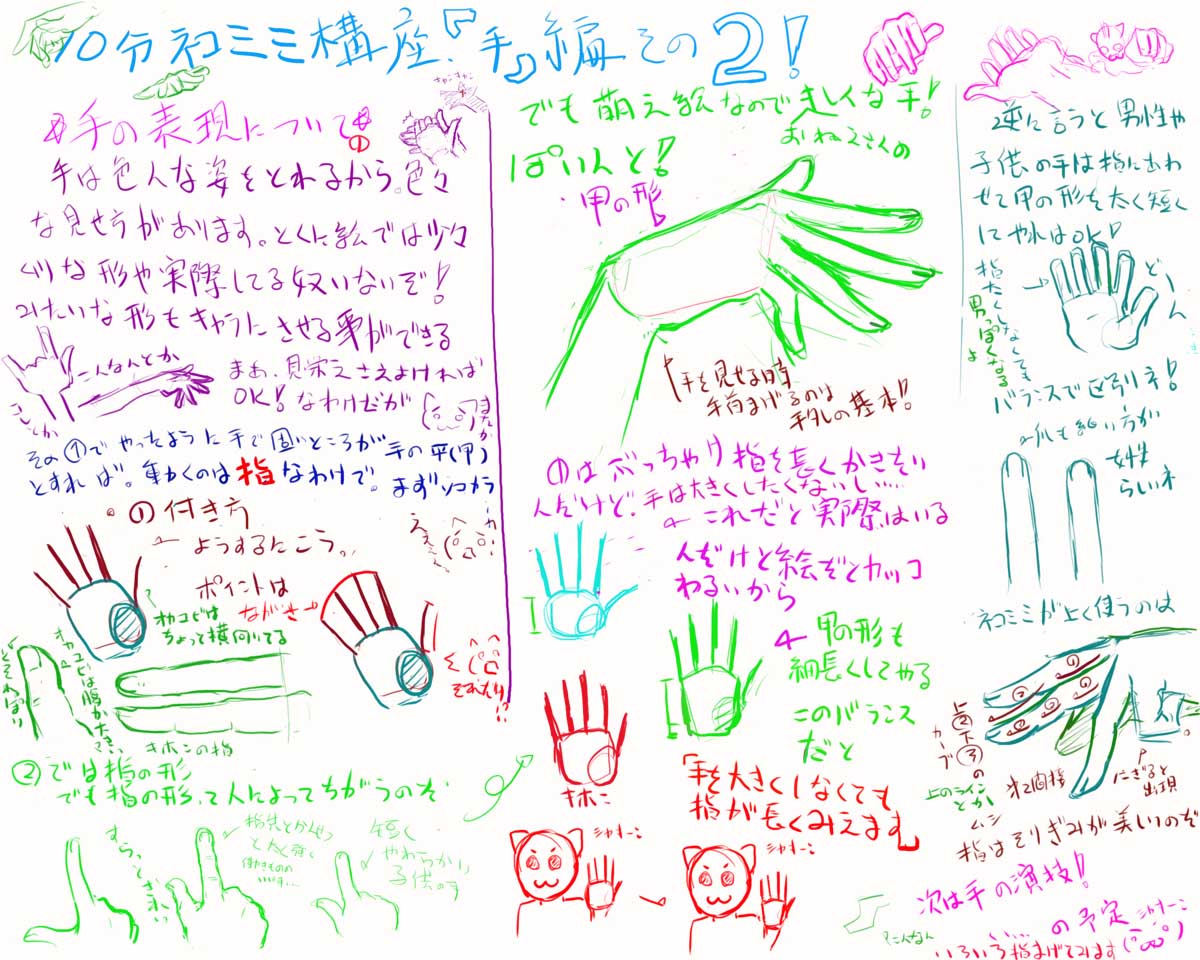 10分ネコミミ講座、『手』編その2!
キャシャキャシャ
手の表現について
手は色んな姿をとれるから。色々
な見せ方があります。とくに絵では少々
ムリな形や実際してる奴いないぞ!
みたいな形もキャラにさせる事ができる
こんなんとか
まあ、見栄えさえよければ
OK!なわけだが
その①でやったように手で固いところが手の平(甲)
とすれば。動くのは指なわけで。まずソコから
の付き方
ようするにこう。
ポイントは
ながさ
オヤユビは
ちょっと横向いてる
オヤユビは腹が大きく
キホンの指
それだけ!?
②では指の形
でも指の形って人によってちがうのぞ
すらっときれい
指先とかんせつ
太く強く
働きものの
短く
やわらかい
子供の手
でも萌え絵なので美しくな手!
おねえさんの
ぽいんと!
・甲の形
「手を見せる時
手首まげるのは
手タレの基本!
①はぶっちゃけ指を長くかきたい
んだけど、手は大きくしたくないし……
これだと実際はいる
んだけど絵だとカッコ
わるいから
甲の形も
細長くしてやる
このバランス
だと
「手を大きくしなくても
指が長くみえます」
キホン
シャキーン
シャキーン
逆に言うと男性や
子供の手は指にあわ
せて甲の形を太く短く
してやればOK!
指太くしなくても
男っぽくなるよ
どーん
バランスで区別ネ!
爪も細い方が
女性
らしいネ
ネコミミが よく使うのは
上②下③の
カーブ
上のライン
とか
オて間接
ムシ
にぎると
出現
指はそりぎみが美しいのぞ
次は手の演技!
の予定
こんなん
いろいろ指まげてみます